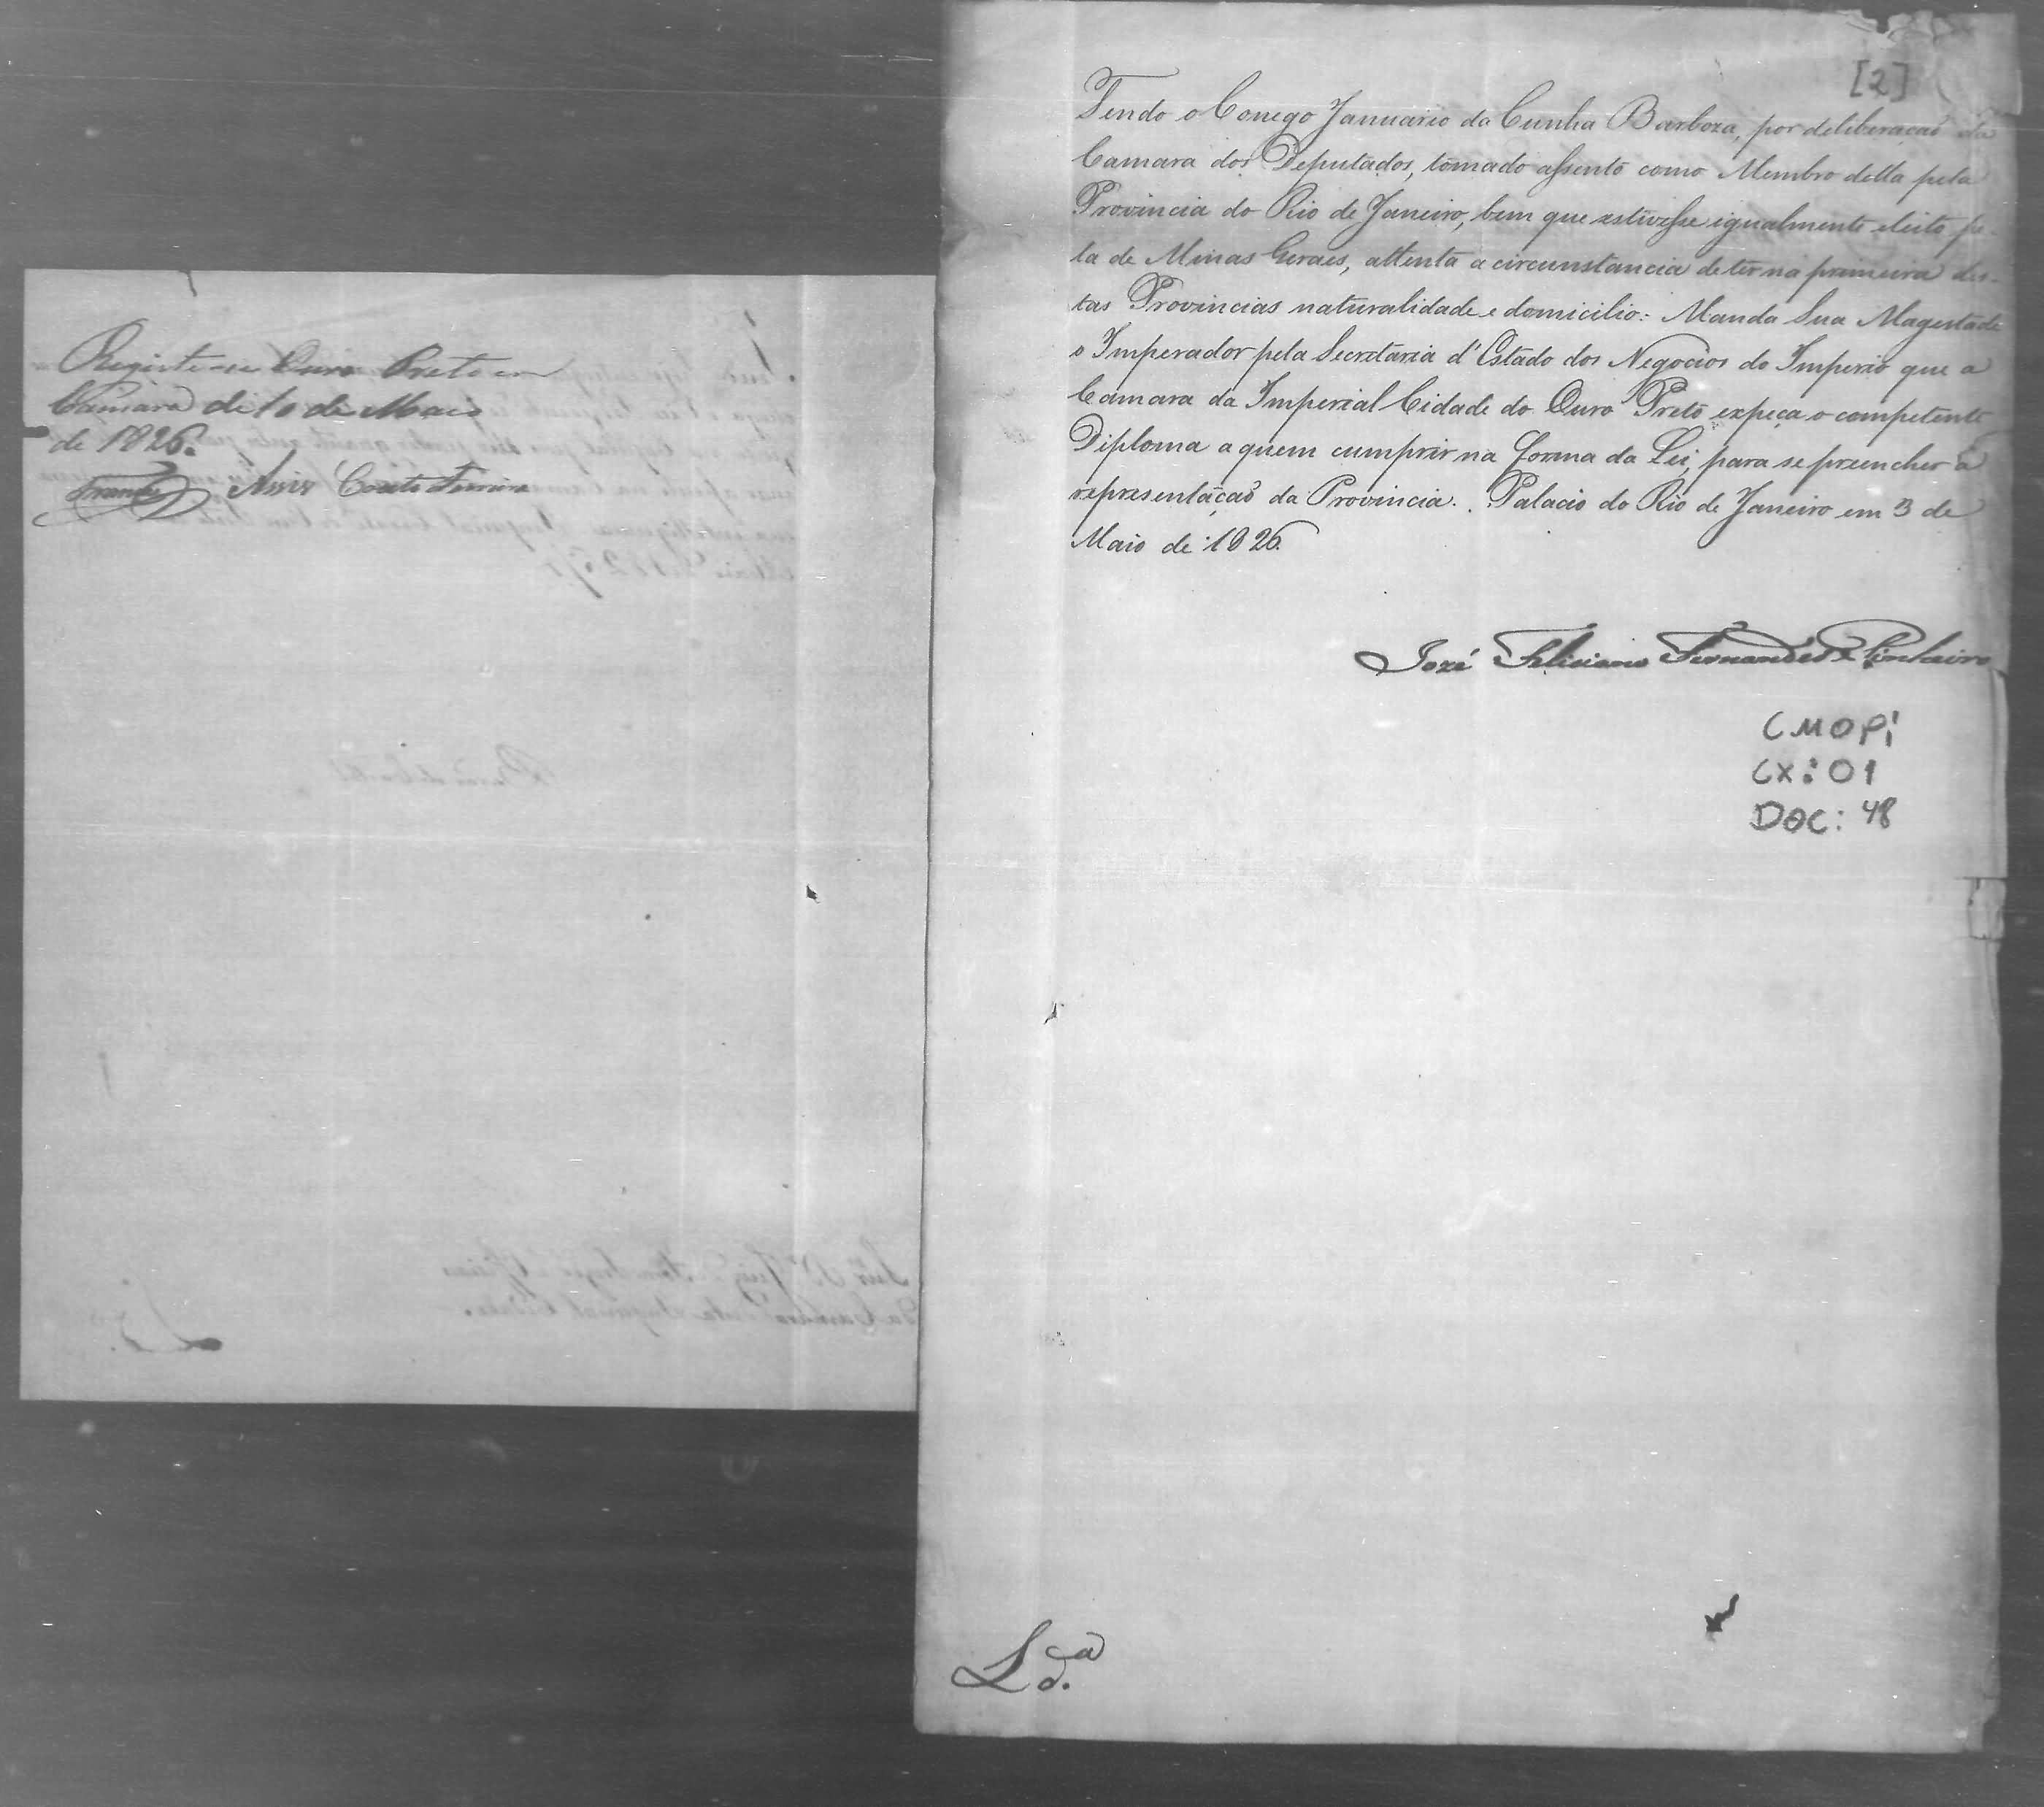 Registe-se Ouro Preto em
Camara de 10 de Maio
de 1826.
Assis Couto Ferreira
[2]
Tendo o Conego Januario da Cunha Barboza, por deliberação da
Camara dos Deputados, tomado assento como Membro della pela
Provincia do Rio de Janeiro, bem que estivesse igualmente eleito pe-
la de Minas Geraes, attenta a circunstancia de ter na primeira des-
tas Provincias naturalidade e domicilio: Manda Sua Magestade
o Imperador pela Secretaria d'Estado dos Negocios do Imperio que a
Camara da Imperial Cidade do Ouro Preto expeça o competente
Diploma a quem cumprir na forma da Lei, para se preencher a
representação da Provincia. Palacio do Rio de Janeiro em 3 de
Maio de 1826.
Jozé Feliciano Fernandes Pinheiro
CMOP;
CX: 01
DOC: 48
L.da